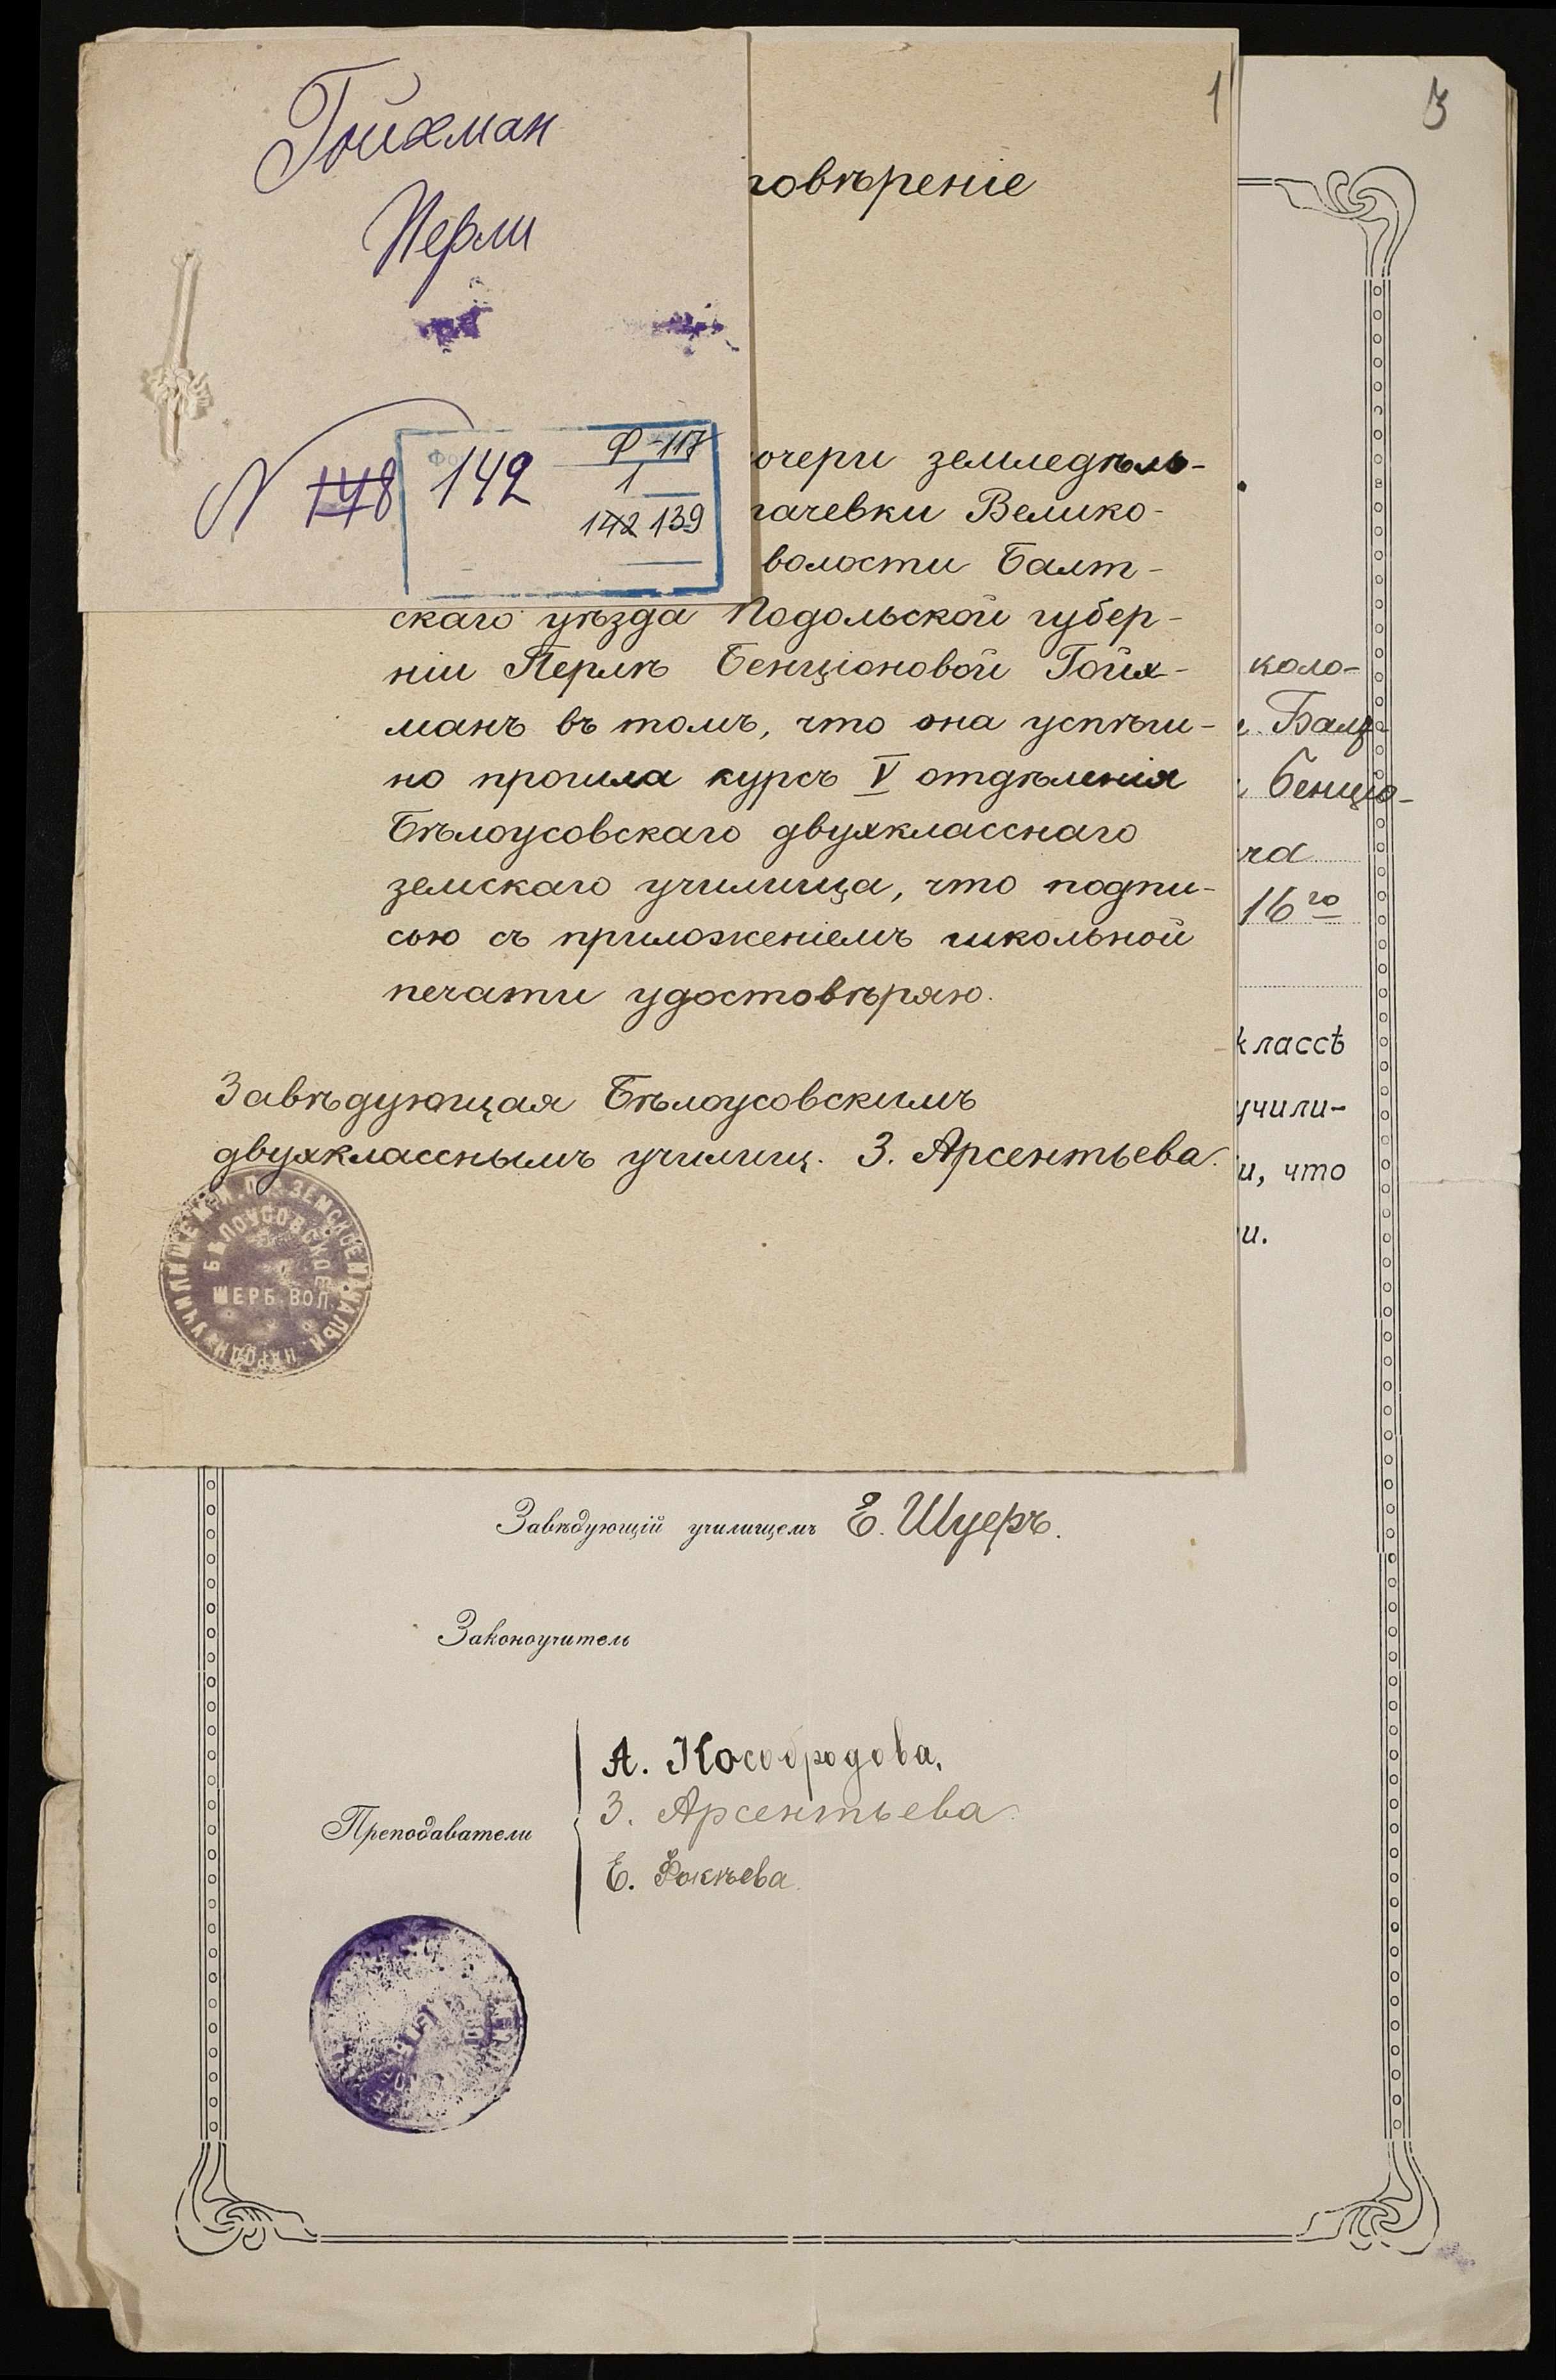 Гойхман
Перли
N 148
142
Ф-117
1
142 139
1
товѣреніе
очери земледѣль-
гачевки Велико-
волости Балт-
скаго уѣзда Подольской губер-
ніи Перлѣ Бенціоновой Гойх-
манъ въ томъ, что она успѣш-
но прошла курсъ V отдѣленія
Бѣлоусовскаго двухкласснаго
земскаго училища, что подпи-
сью съ приложеніемъ школьной
печати удостовѣряю.
Завѣдующая Бѣлоусовскимъ
двухкласснымъ училищ. З. Арсентьева.
М.Н.П. ЗЕМСКОЕ НАЧАЛЬН. НАРОДН. УЧИЛИЩЕ
БѢЛОУСОВСКОЕ
ШЕРБ. ВОЛ.
3
коло-
Балт
Бенціо-
ча
16го
классѣ
учили-
и, что
и.
Завѣдующій училищемъ Е. Шуеръ.
Законоучитель
Преподаватели
А. Кособродова.
З. Арсентьева
Е. Фокѣева